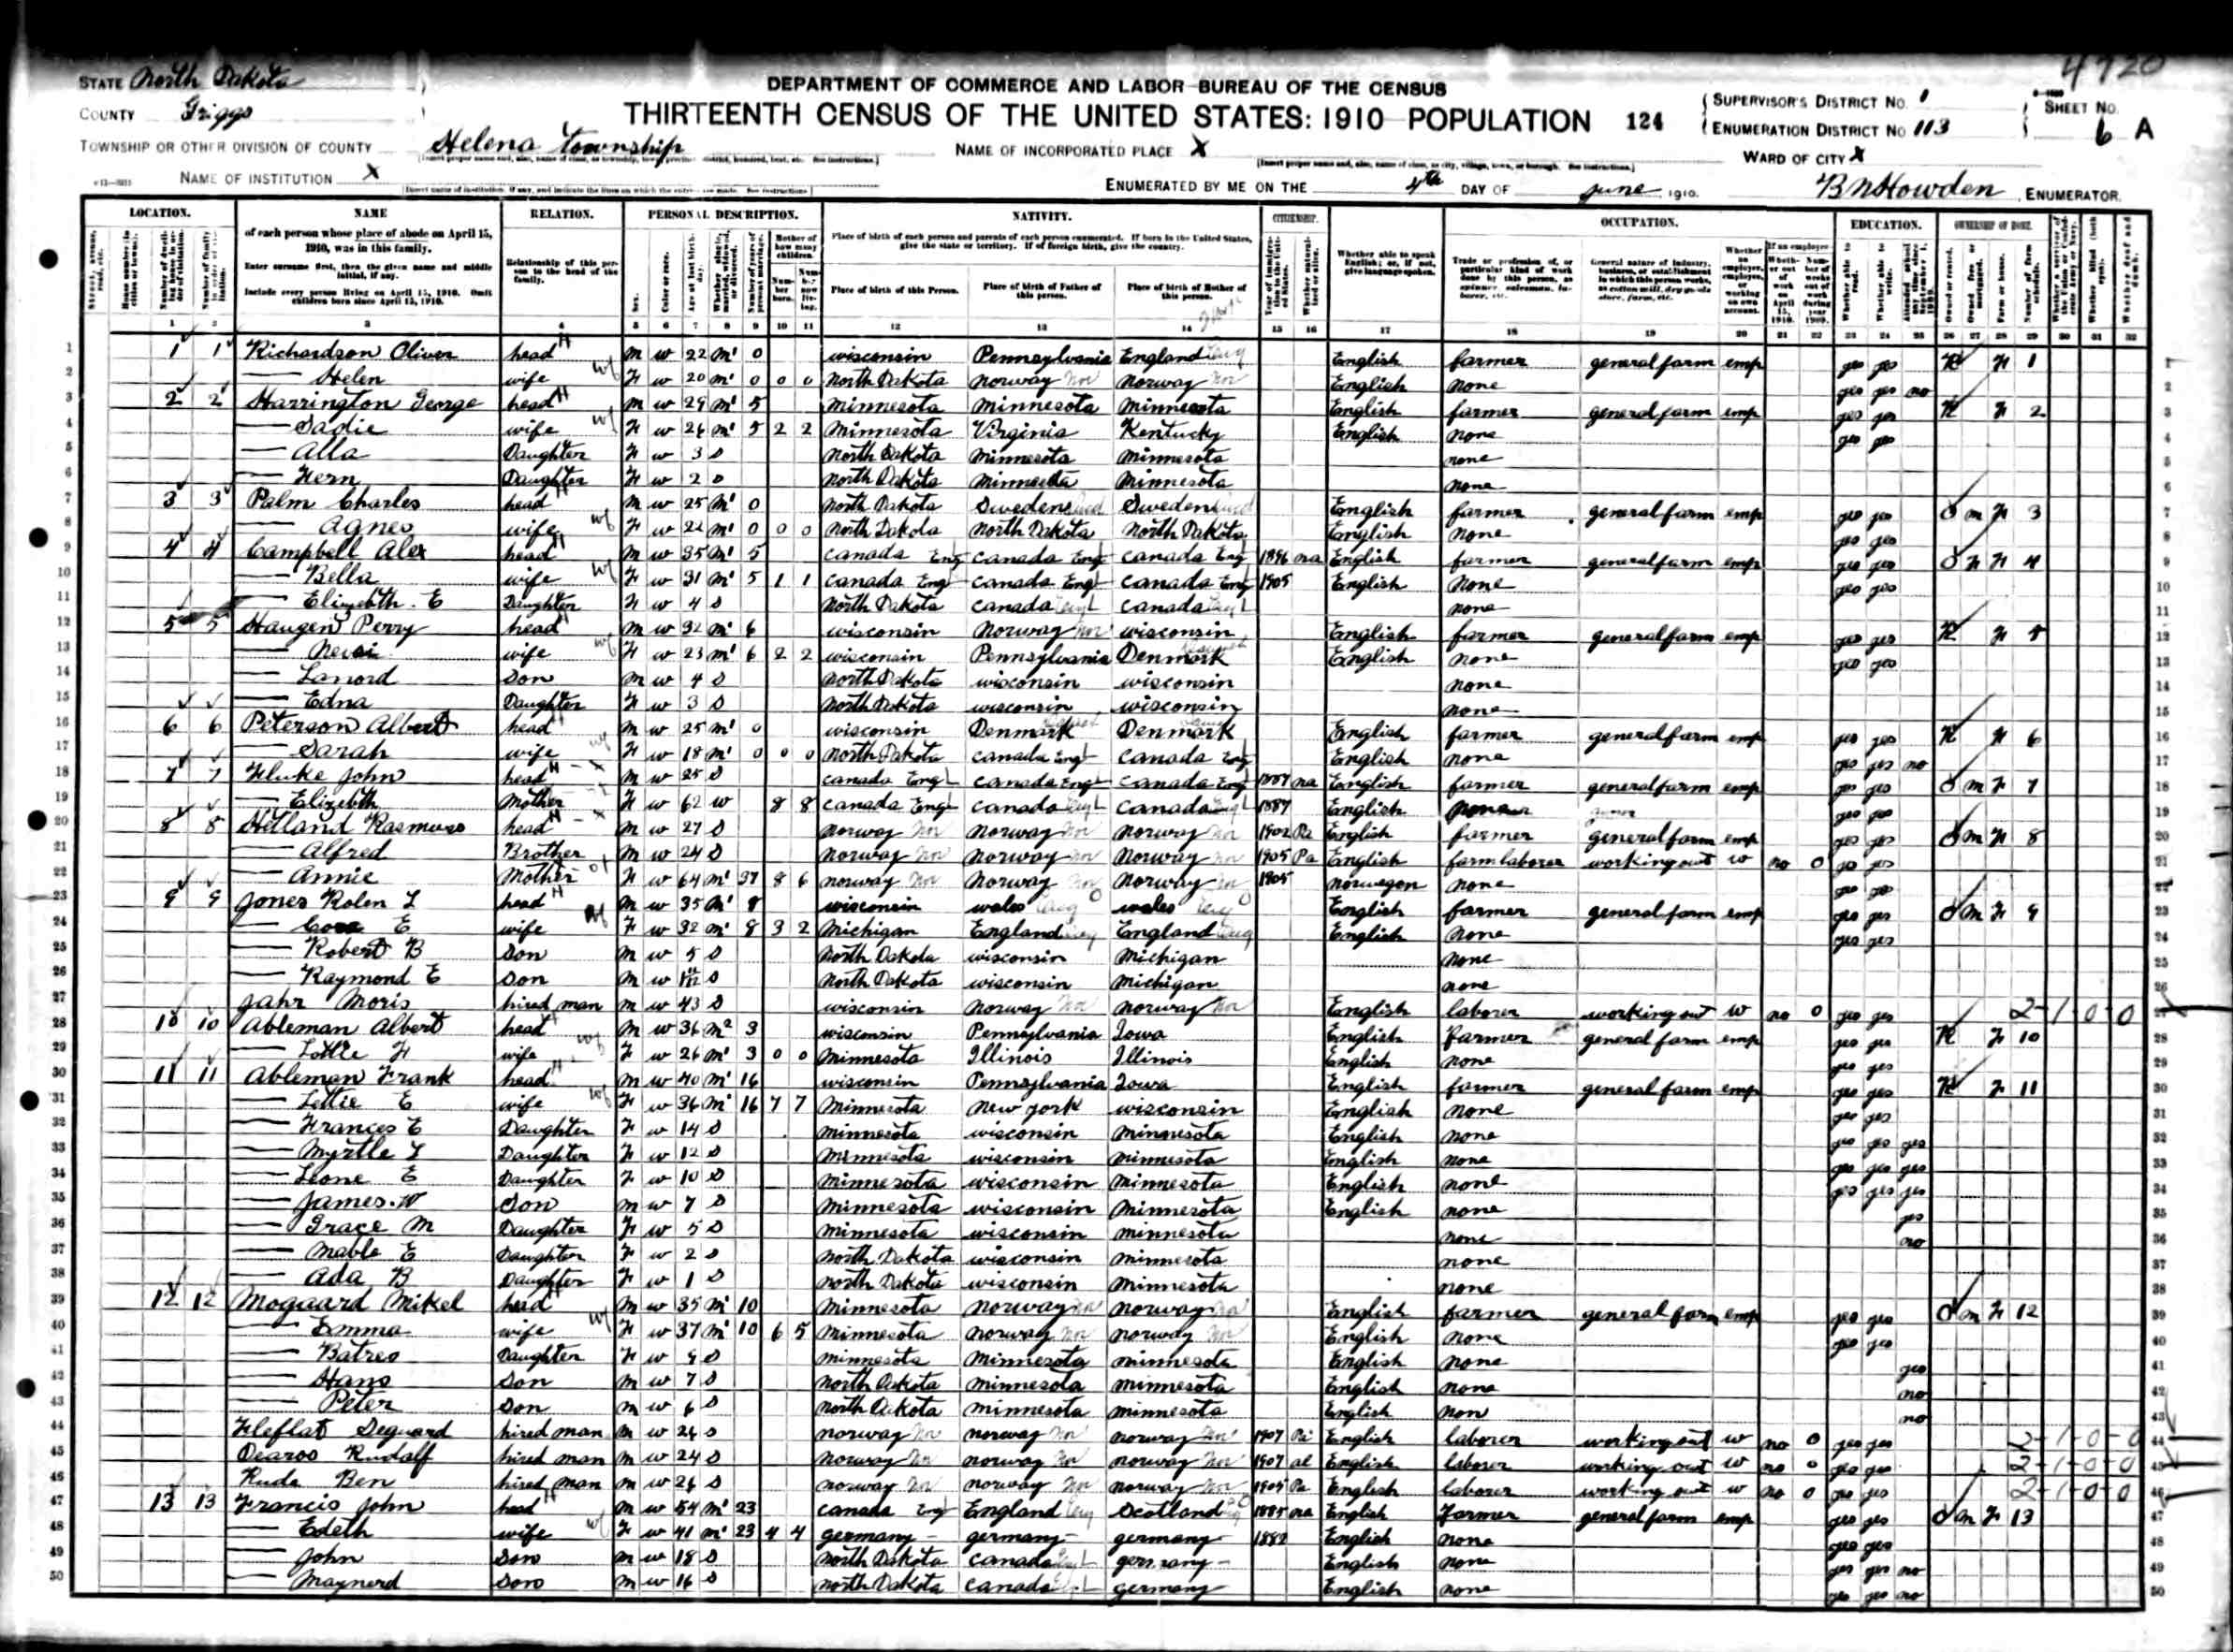 4720
STATE North Dakota
COUNTY Griggs
TOWNSHIP OR OTHER DIVISION OF COUNTY Helena Township
NAME OF INSTITUTION X
DEPARTMENT OF COMMERCE AND LABOR-BUREAU OF THE CENSUS
THIRTEENTH CENSUS OF THE UNITED STATES: 1910 POPULATION 124
NAME OF INCORPORATED PLACE X
SUPERVISOR'S DISTRICT NO. 1
ENUMERATION DISTRICT NO 113
SHEET NO. 6 A
WARD OF CITY X
ENUMERATED BY ME ON THE 4th DAY OF June, 1910. B N Howden, ENUMERATOR.
LOCATION. NAME RELATION. PERSONAL DESCRIPTION. NATIVITY. CITIZENSHIP. OCCUPATION. EDUCATION. OWNERSHIP OF HOME.
of each person whose place of abode on April 15, 1910, was in this family.
Enter surname first, then the given name and middle initial, if any.
Include every person living on April 15, 1910. Omit children born since April 15, 1910.
Relationship of this person to the head of the family.
Place of birth of each person and parents of each person enumerated. If born in the United States, give the state or territory. If of foreign birth, give the country.
Place of birth of this Person. Place of birth of Father of this person. Place of birth of Mother of this person.
Whether able to speak English; or, if not, give language spoken.
1 1 1 Richardson Oliver head M W 22 M1 0 wisconsin Pennsylvania England English farmer general farm emp yes yes R F 1
2 Helen wife F W 20 M1 0 0 0 North Dakota norway norway English none yes yes no
3 2 2 Harrington George head M W 29 M1 5 minnesota minnesota minnesota English farmer general farm emp yes yes R F 2
4 Sadie wife F W 26 M1 5 2 2 minnesota Virginia Kentucky English none yes yes
5 Alla Daughter F W 3 S North Dakota minnesota minnesota none
6 Fern Daughter F W 2 S North Dakota minnesota minnesota none
7 3 3 Palm Charles head M W 25 M1 0 North Dakota Sweden Sweden English farmer general farm emp yes yes O M F 3
8 Agnes wife F W 22 M1 0 0 0 North Dakota North Dakota North Dakota English none yes yes
9 4 4 Campbell Alex head M W 35 M1 5 canada Eng canada Eng canada Eng 1896 na English farmer general farm emp yes yes O F F 4
10 Bella wife F W 31 M1 5 1 1 canada Eng canada Eng canada Eng 1905 English none yes yes
11 Elizebth. E Daughter F W 4 S North Dakota canada canada none
12 5 5 Haugen Perry head M W 32 M1 6 wisconsin norway wisconsin English farmer general farm emp yes yes R F 5
13 wife F W 23 M1 6 2 2 wisconsin Pennsylvania Denmark English none yes yes
14 Lanord son M W 4 S North Dakota wisconsin wisconsin none
15 Edna Daughter F W 3 S North Dakota wisconsin wisconsin none
16 6 6 Peterson Albert head M W 25 M1 0 wisconsin Denmark Denmark English farmer general farm emp yes yes R F 6
17 Sarah wife F W 18 M1 0 0 0 North Dakota canada Eng canada Eng English none yes yes no
18 7 7 Fluke John head M W 25 S canada Eng canada Eng canada Eng 1887 na English farmer general farm emp yes yes O M F 7
19 Elizebth Mother F W 62 W 8 8 canada Eng canada canada 1887 English none yes yes
20 8 8 Hetland Rasmuss head M W 27 S norway norway norway 1902 Pa English farmer general farm emp yes yes O M F 8
21 Alfred Brother M W 24 S norway norway norway 1905 Pa English farm laborer working out W no 0 yes yes
22 Annie Mother F W 64 M1 37 8 6 norway norway norway 1905 norwegon none yes yes
23 9 9 Jones Rolen L head M W 35 M1 8 wisconsin wales wales English farmer general farm emp yes yes O M F 9
24 Cora E wife F W 32 M1 8 3 2 Michigan England England English none yes yes
25 Robert B son M W 5 S North Dakota wisconsin Michigan none
26 Raymond E son M W S North Dakota wisconsin Michigan none
27 Jahr Moris hired man M W 43 S wisconsin norway norway English laborer working out W no 0 yes yes 2-1-0-0
28 10 10 Ableman Albert head M W 36 M2 3 wisconsin Pennsylvania Iowa English farmer general farm emp yes yes R F 10
29 Lottie F wife F W 26 M1 3 0 0 Minnesota Illinois Illinois English none yes yes
30 11 11 Ableman Frank head M W 40 M1 16 wisconsin Pennsylvania Iowa English farmer general farm emp yes yes R F 11
31 Lettie E wife F W 36 M1 16 7 7 Minnesota new york wisconsin English none yes yes
32 Frances E Daughter F W 14 S minnesota wisconsin minnesota English none yes yes yes
33 Myrtle L Daughter F W 12 S minnesota wisconsin minnesota English none yes yes yes
34 Leone E Daughter F W 10 S minnesota wisconsin minnesota English none yes yes yes
35 James. W Son M W 7 S minnesota wisconsin minnesota English none yes
36 Grace M Daughter F W 5 S minnesota wisconsin minnesota none no
37 Mable E Daughter F W 2 S North Dakota wisconsin minnesota none
38 Ada B Daughter F W 1 S north Dakota wisconsin minnesota none
39 12 12 Mogaard Mikel head M W 35 M1 10 minnesota norway norway English farmer general farm emp yes yes O M F 12
40 Emma wife F W 37 M1 10 6 5 minnesota norway norway English none yes yes
41 Batres Daughter F W 9 S minnesota minnesota minnesota English none yes
42 Hans son M W 7 S North Dakota minnesota minnesota English none no
43 Peter son M W 6 S North Dakota minnesota minnesota English non no
44 Fleflat Deguard hired man M W 26 S norway norway norway 1907 Pa English laborer working out W no 0 yes yes 2-1-0-0
45 Dearos Rudalf hired man M W 24 S norway norway norway 1907 al English laborer working out W no 0 yes yes 2-1-0-0
46 Rude Ben hired man M W 26 S norway norway norway 1905 Pa English laborer working out W no 0 yes yes 2-1-0-0
47 13 13 Francis John head M W 54 M1 23 canada Eng England Scotland 1885 na English Farmer general farm emp yes yes O M F 13
48 Edeth wife F W 41 M1 23 4 4 germany germany germany 1882 English none yes yes
49 John son M W 18 S North Dakota canada germany English none yes yes no
50 Maynerd son M W 16 S north Dakota canada germany English none yes yes no